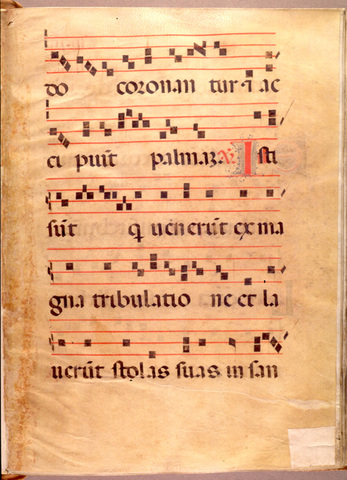 do coronan tur ⁊ ac
ci piūt palmaʒ. Añ. Isti
sūt q̄ uenerūt ex ma
gna tribulatio ne et la
uerūt stolas suas in san